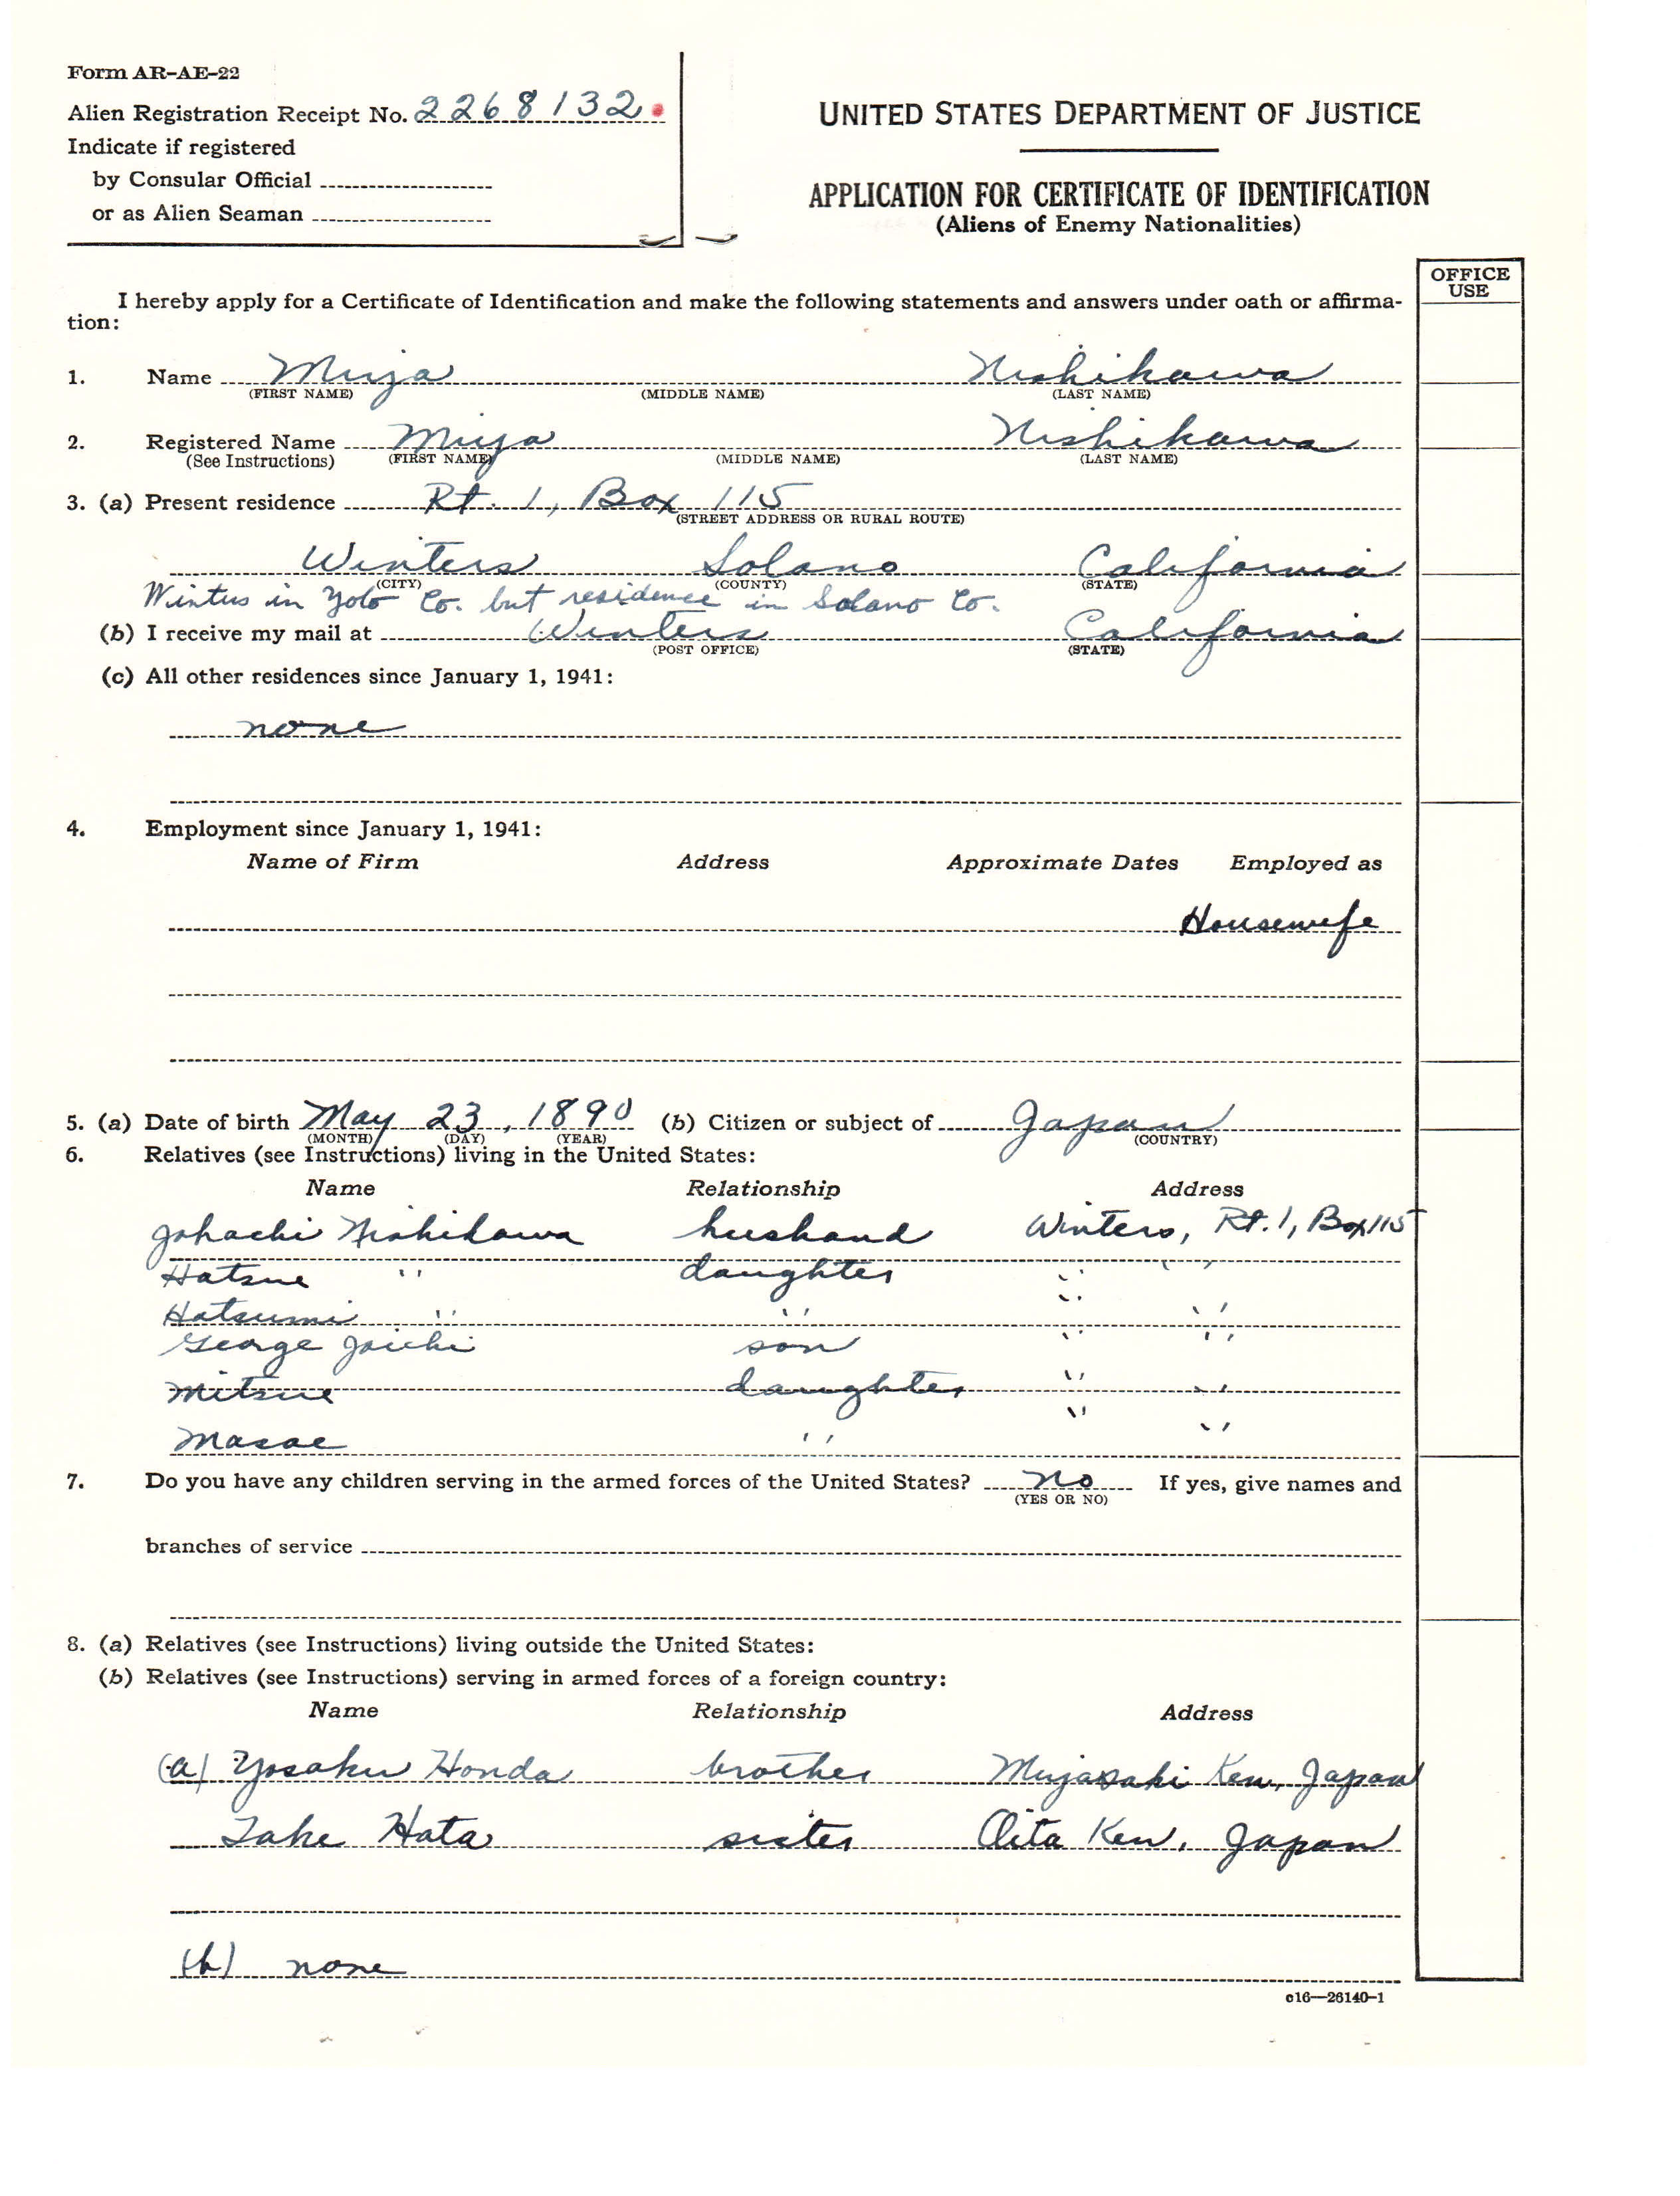 Form AR-AE-22
Alien Registration Receipt No. 2268132
Indicate if registered
by Consular Official
or as Alien Seaman
UNITED STATES DEPARTMENT OF JUSTICE
APPLICATION FOR CERTIFICATE OF IDENTIFICATION
(Aliens of Enemy Nationalities)
OFFICE
USE
I hereby apply for a Certificate of Identification and make the following statements and answers under oath or affirma-
tion:
1. Name Miya Nishikawa
(FIRST NAME) (MIDDLE NAME) (LAST NAME)
2. Registered Name Miya Nishikawa
(See Instructions) (FIRST NAME) (MIDDLE NAME) (LAST NAME)
3. (a) Present residence Rt. 1, Box 115
(STREET ADDRESS OR RURAL ROUTE)
Winters Solano California
(CITY) (COUNTY) (STATE)
Winters in Yolo Co. but residence in Solano Co.
(b) I receive my mail at Winters California
(POST OFFICE) (STATE)
(c) All other residences since January 1, 1941:
none
4. Employment since January 1, 1941:
Name of Firm Address Approximate Dates Employed as
Housewife
5. (a) Date of birth May 23, 1890 (b) Citizen or subject of Japan
(MONTH) (DAY) (YEAR) (COUNTRY)
6. Relatives (see Instructions) living in the United States:
Name Relationship Address
Johachi Nishikawa husband Winters, Rt. 1, Box 115
Hatsue " daughter " "
Hatsumi " " " "
George Joichi son " "
Mitsue daughter " "
Masae " " "
7. Do you have any children serving in the armed forces of the United States? no If yes, give names and
(YES OR NO)
branches of service
8. (a) Relatives (see Instructions) living outside the United States:
(b) Relatives (see Instructions) serving in armed forces of a foreign country:
Name Relationship Address
(a) Yosaku Honda brother Miyazaki Ken, Japan
Take Hata sister Oita Ken, Japan
(b) none
c16—26140-1